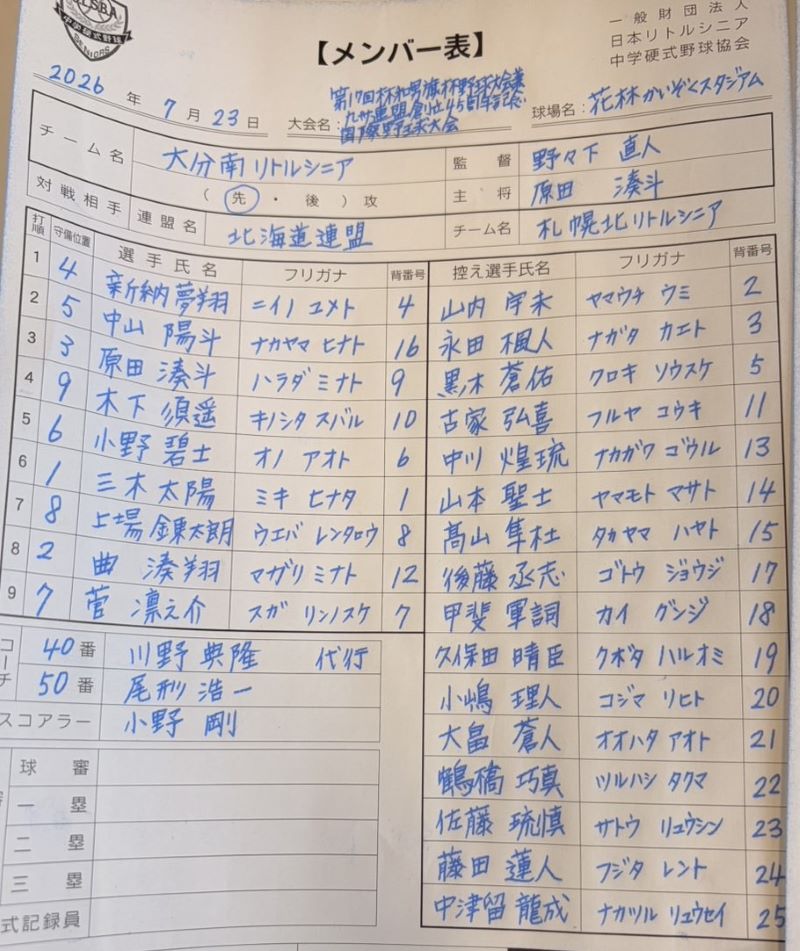 LSBA
SENIORS
【メンバー表】
一般財団法人
日本リトルシニア
中学硬式野球協会
2026 年 7 月 23 日
大会名：
九州連盟創立45周年記念
国際野球大会
球場名：花林かいぞくスタジアム
チーム名 大分南リトルシニア 監督 野々下 直人
（ 先 ・ 後 ） 攻 主将 原田 湊斗
対戦相手 連盟名 北海道連盟 チーム名 札幌北リトルシニア
打順 守備位置 選手氏名 フリガナ 背番号 控え選手氏名 フリガナ 背番号
1 4 新納夢翔 ニイノ ユメト 4 山内 宇未 ヤマウチ ウミ 2
2 5 中山 陽斗 ナカヤマ ヒナト 16 永田 楓人 ナガタ カエト 3
3 3 原田 湊斗 ハラダ ミナト 9 黒木 蒼佑 クロキ ソウスケ 5
4 9 木下 須遥 キノシタ スバル 10 古家 弘喜 フルヤ コウキ 11
5 6 小野 碧士 オノ アオト 6 中川 煌琉 ナカガワ ゴウル 13
6 1 三木 太陽 ミキ ヒナタ 1 山本 聖士 ヤマモト マサト 14
7 8 上場 錬太朗 ウエバ レンタロウ 8 髙山 隼杜 タカヤマ ハヤト 15
8 2 曲 湊翔 マガリ ミナト 12 後藤 丞志 ゴトウ ジョウジ 17
9 7 菅 凛之介 スガ リンノスケ 7 甲斐 軍詞 カイ グンジ 18
コーチ 40番 川野 典隆 代行 久保田 晴臣 クボタ ハルオミ 19
50番 尾形 浩一 小嶋 理人 コジマ リヒト 20
スコアラー 小野 剛 大畠 蒼人 オオハタ アオト 21
球審 鶴橋 巧真 ツルハシ タクマ 22
一塁 佐藤 琉慎 サトウ リュウシン 23
二塁
三塁 藤田 蓮人 フジタ レント 24
式記録員 中津留 龍成 ナカツル リュウセイ 25